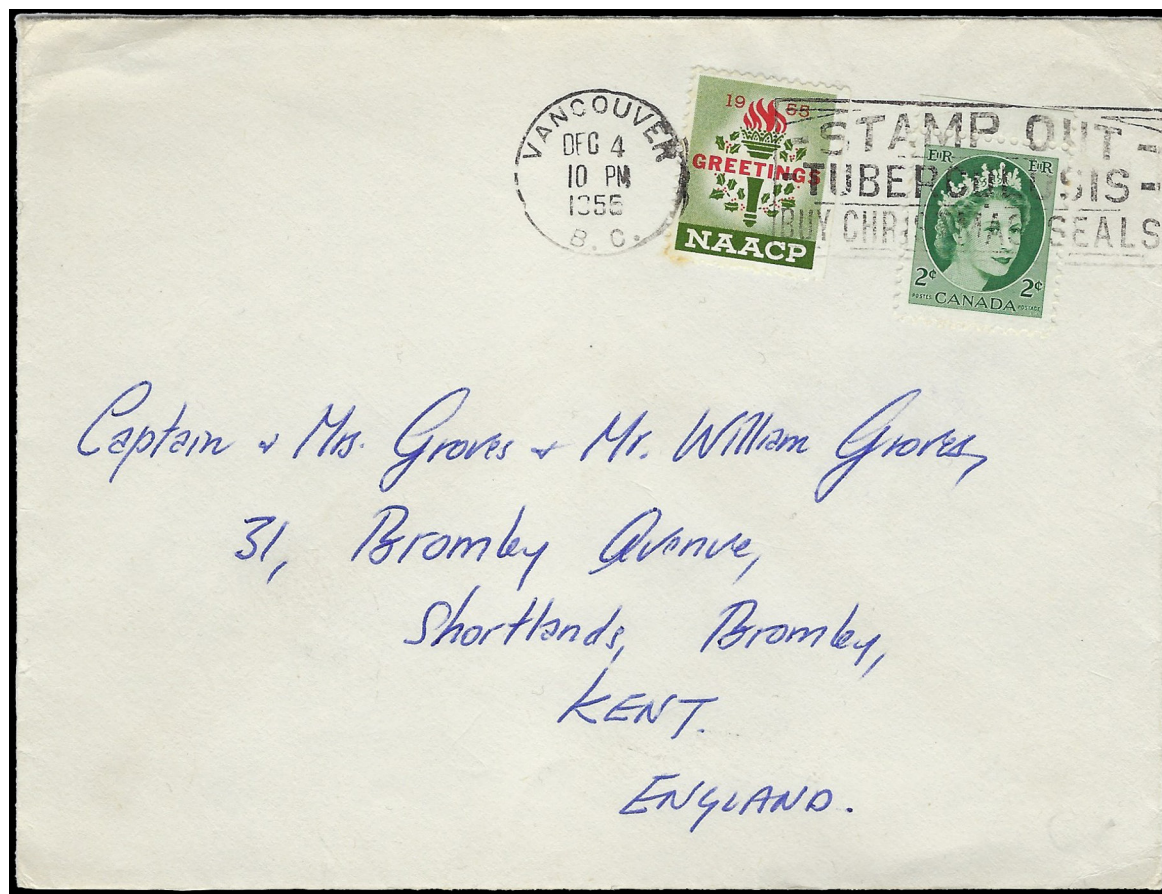 VANCOUVER
DEC 4
10 PM
B. C.
19
GREETINGS
NAACP
STAMP OUT
TUBERCULOSIS
BUY CHRISTMAS SEALS
E II R E II R
2¢ 2¢
POSTES CANADA POSTAGE
Captain & Mrs. Groves & Mr. William Groves,
31, Bromley Avenue,
Shortlands, Bromley,
KENT.
ENGLAND.